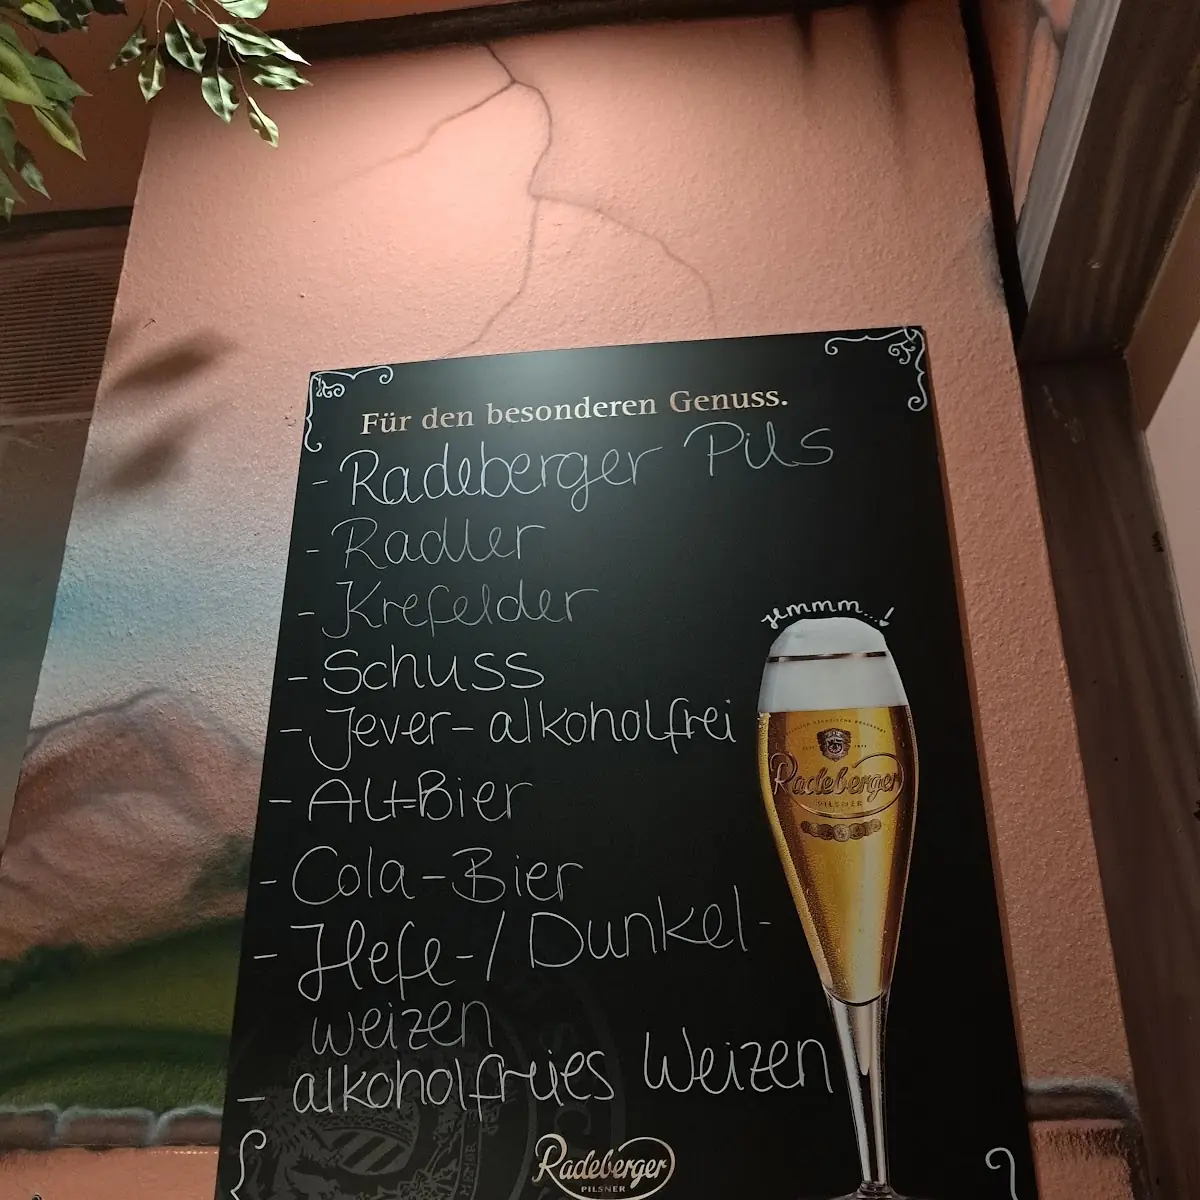 Für den besonderen Genuss.
- Radeberger Pils
- Radler
- Krefelder
- Schuss
- Jever-alkoholfrei
- Alt-Bier
- Cola-Bier
- Hefe-/Dunkel-
weizen
- alkoholfreies Weizen
Radeberger
PILSNER
Radeberger
PILSNER